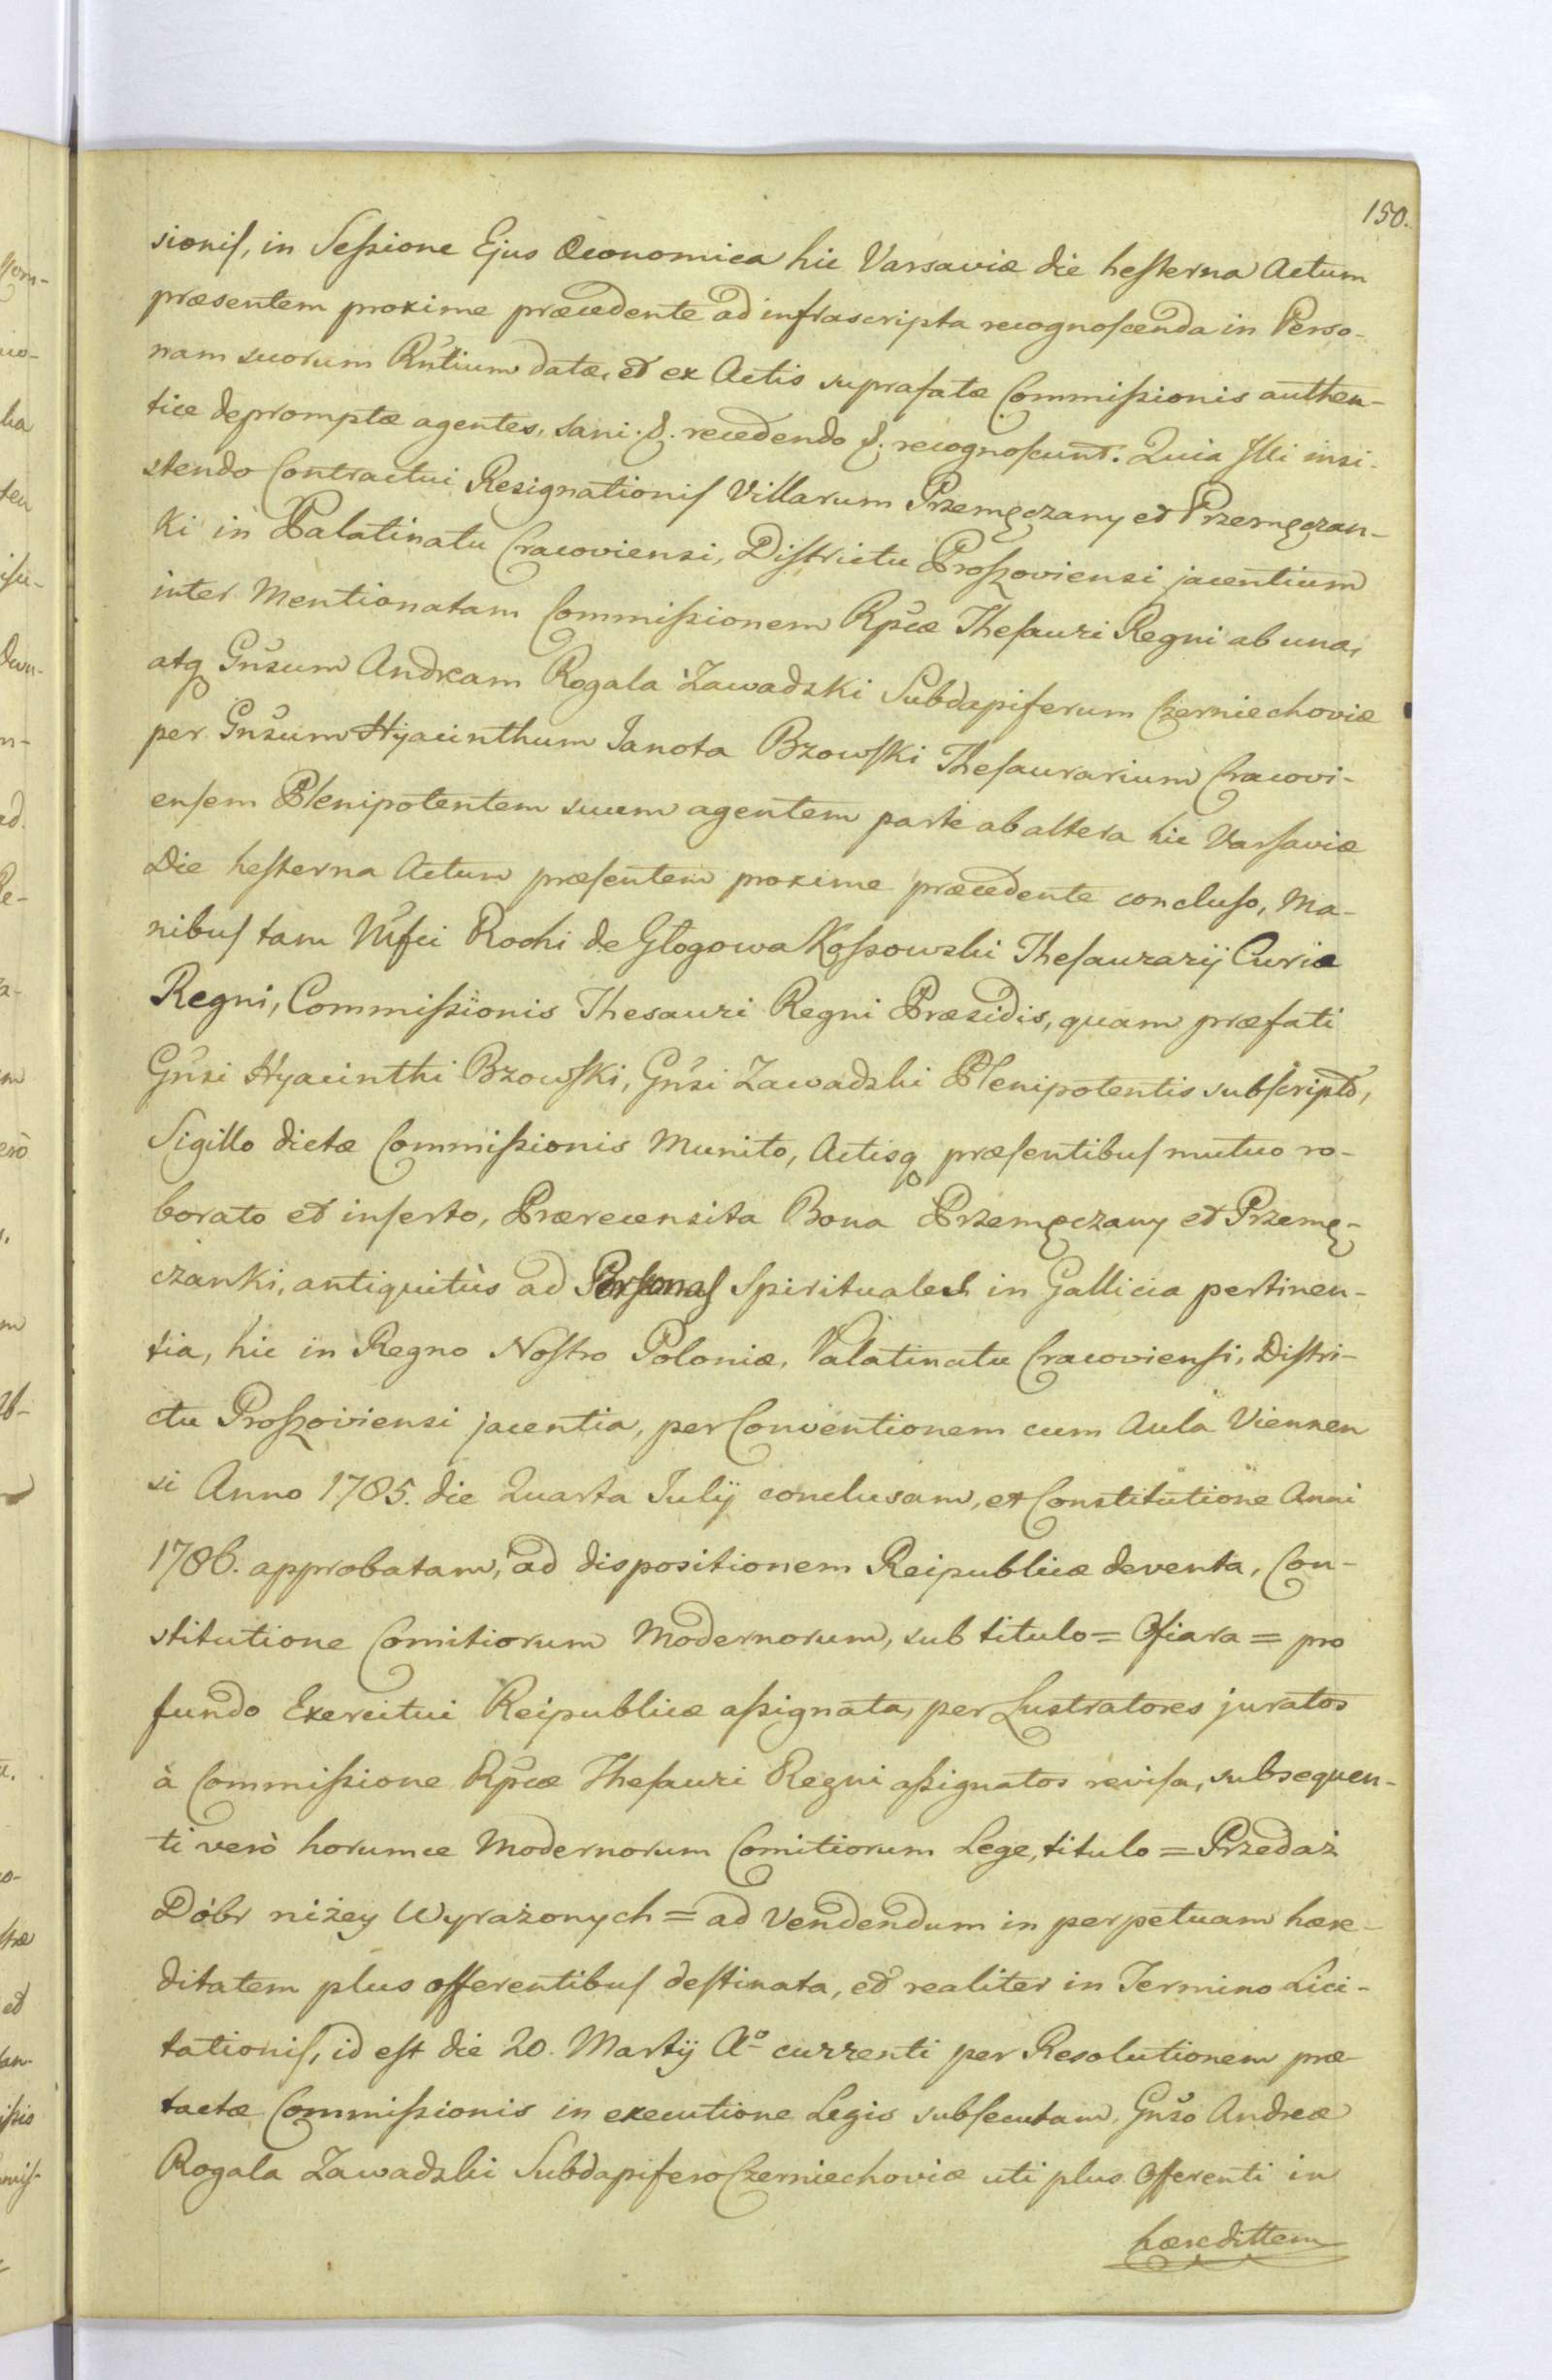 150.
sionis, in Sessione Ejus Oeconomica hic Varsaviæ die hesterna Actum
præsentem proxime præcedente ad infrascripta recognoscenda in Perso-
nam suorum Rntium datæ, et ex Actis suprafatæ Commissionis authen-
tice depromptæ agentes, sani. &. recedendo &. recognoscunt. Quia Illi insi-
stendo Contractui Resignationis Villarum Przemęczany et Przemęczan-
ki in Palatinatu Cracoviensi, Districtu Proszoviensi jacentium
inter Mentionatam Commissionem Rpcæ Thesauri Regni ab una,
atq Gnsum Andream Rogala Zawadzki Subdapiferum Czerniechoviæ
per Gnsum Hyacinthum Janota Bzowski Thesaurarium Cracovi-
ensem Plenipotentem suum agentem parte ab altera hic Varsaviæ
Die hesterna Actum præsentem proxime præcedente concluso, Ma-
nibus tam Mfci Rochi de Głogowa Kossowski Thesaurarij Curiæ
Regni, Commissionis Thesauri Regni Præsidis, quam præfati
Gnsi Hyacinthi Bzowski, Gnsi Zawadzki Plenipotentis subscripto,
Sigillo dictæ Commissionis Munito, Actisq præsentibus mutuo ro-
borato et inserto, Prærecensita Bona Przemęczany et Przemę-
czanki, antiquitùs ad Personas Spirituales in Gallicia pertinen-
tia, hic in Regno Nostro Poloniæ, Palatinatu Cracoviensi, Distri-
ctu Proszoviensi jacentia, per Conventionem cum Aula Viennen
si Anno 1785. die Quarta Julij conclusam, et Constitutione Anni
1786. approbatam, ad dispositionem Reipublicæ deventa, Con-
stitutione Comitiorum Modernorum, sub titulo = Ofiara = pro
fundo Exercitui Reipublicæ assignata, per Lustratores juratos
à Commissione Rpcæ Thesauri Regni assignatos revisa, subsequen-
ti verò horumce Modernorum Comitiorum Lege, titulo = Przedaż
Dóbr niżey Wyrażonych = ad Vendendum in perpetuam hære-
ditatem plus offerentibus destinata, et realiter in Termino Lici-
tationis, id est die 20. Martij Aº currenti per Resolutionem præ-
tactæ Commissionis in executione Legis subsecutam, Gnso Andreæ
Rogala Zawadzki Subdapifero Czerniechoviæ uti plus Offerenti in
hæredittem